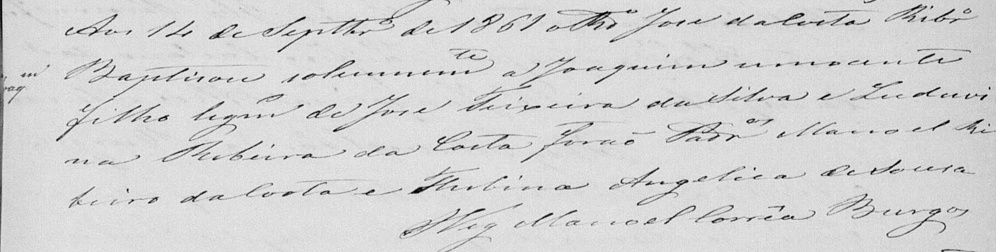 Aos 14 de Septbr de 1861 o Rdo José da Costa Ribro
Baptisou solemnemte a Joaquim innocente
filho legmo de José Teixeira da Silva e Luduvi
na Ribeira da Costa forão Padros Manoel Ri
beiro da Costa e Angelica de Sousa
Manoel Corrêa Burgos